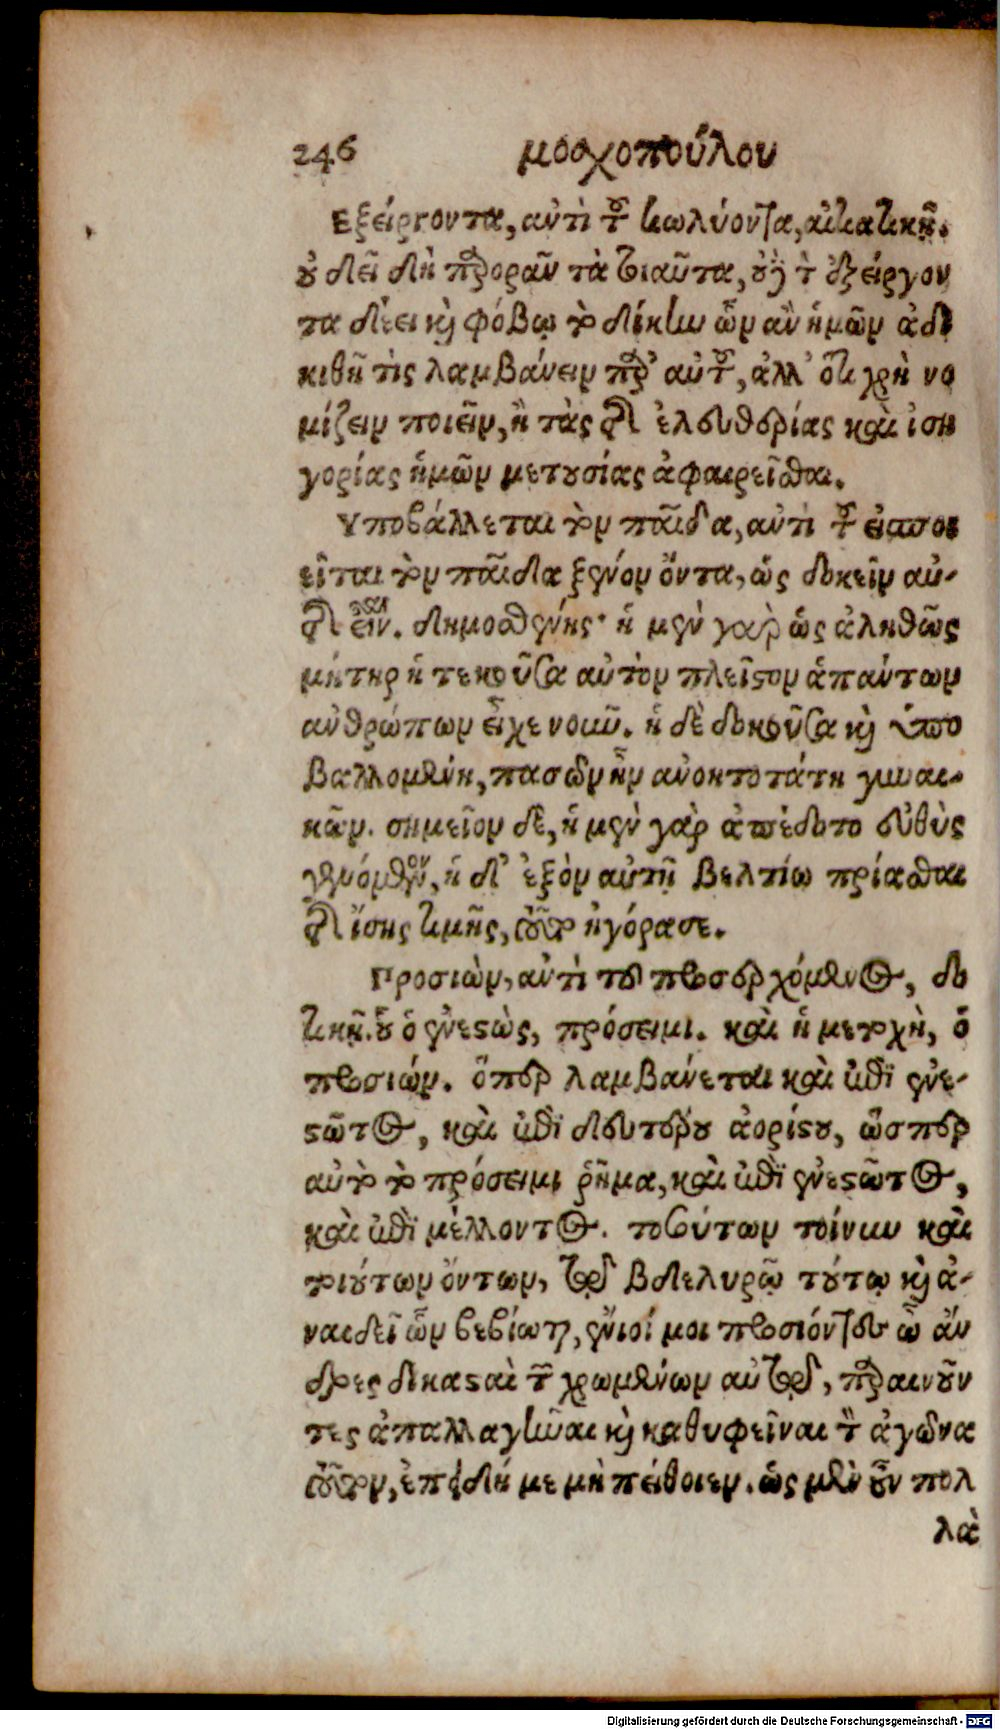 246 μοσχοπούλου
Εξείργοντα, αὐτὶ τοῦ κωλύοντα, αἰτιατικῇ.
οὐ δεῖ δὴ παρορᾶν τὰ τοιαῦτα, οὐδὲ τὸν ἐξείργον
τα δέει καὶ φόβῳ τὸ δίκην ὧν ἂν ἡμῶν ἀδι
κηθῇ τὶς λαμβάνειν παρ' αὐτοῦ, ἀλλ' ὅτι χρὴ νο
μίζειν ποιεῖν, ἢ τὰς τῆς ἐλευθερίας καὶ ἰση
γορίας ἡμῶν μετουσίας ἀφαιρεῖσθαι.
Υποβάλλεται τὸν παῖδα, αὐτὶ τοῦ εἰσποι
εῖται τὸν παῖδα ξένον ὄντα, ὡς δοκεῖν αὐ-
τῆς εἶναι. δημοσθένης· ἡ μὲν γαρ ὡς ἀληθῶς
μήτηρ ἡ τεκοῦσα αὐτὸν πλεῖστον ἁπάντων
ανθρώπων εἶχε νοῦν. ἡ δὲ δοκοῦσα καὶ ὑπο
βαλλομένη, πασῶν ἦν ανοητοτάτη γυναι-
κῶν. σημεῖον δὲ, ἡ μὲν γὰρ ἀπέδοτο εὐθὺς
γενόμενον, ἡ δ' ἐξὸν αὐτῇ βελτίω πρίασθαι
τῆς ἴσης τιμῆς, τοῦτο ηγόρασε.
Προσιὼν, αὐτὶ τοῦ προσερχόμενος, δο
τικῇ. οὗ ὁ ἐνεστὼς, πρόσειμι. καὶ ἡ μετοχὴ, ὁ
προσιών. ὅπερ λαμβάνεται καὶ ἐπὶ ἐνε-
στῶτος, καὶ ἐπὶ δευτέρου ἀορίστου, ὥσπερ
αὐτὸ τὸ πρόσειμι ῥῆμα, καὶ ἐπὶ ἐνεστῶτος,
καὶ ἐπὶ μέλλοντος. τοσούτων τοίνυν καὶ
τοιούτων ὄντων, τῶν βδελυρῷ τούτῳ καὶ ἀ-
ναιδεῖ ὧν βεβίωται, ἔνιοί μοι προσιόντες ὦ ἄν
δρες δικασταὶ τῶν χρωμένων αὐτῷ, παραινοῦν
τες ἀπαλλαγῆναι καὶ καθυφεῖναι τὸν ἀγῶνα
τοῦτον, ἐπειδή με μὴ πείθοιεν. ὡς μὲν οὖν πολ
λὰ
Digitalisierung gefördert durch die Deutsche Forschungsgemeinschaft - DFG